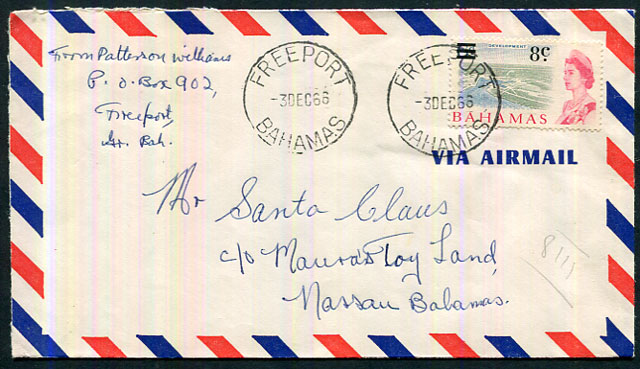 From Patterson Williams
P. O. Box 902,
Freeport,
Gr. Bah.
FREEPORT
-3DEC66
BAHAMAS
FREEPORT
-3DEC66
BAHAMAS
DEVELOPMENT
8c
BAHAMAS
VIA AIRMAIL
Mr Santa Claus
c/o Maura's Toy Land,
Nassau Bahamas.